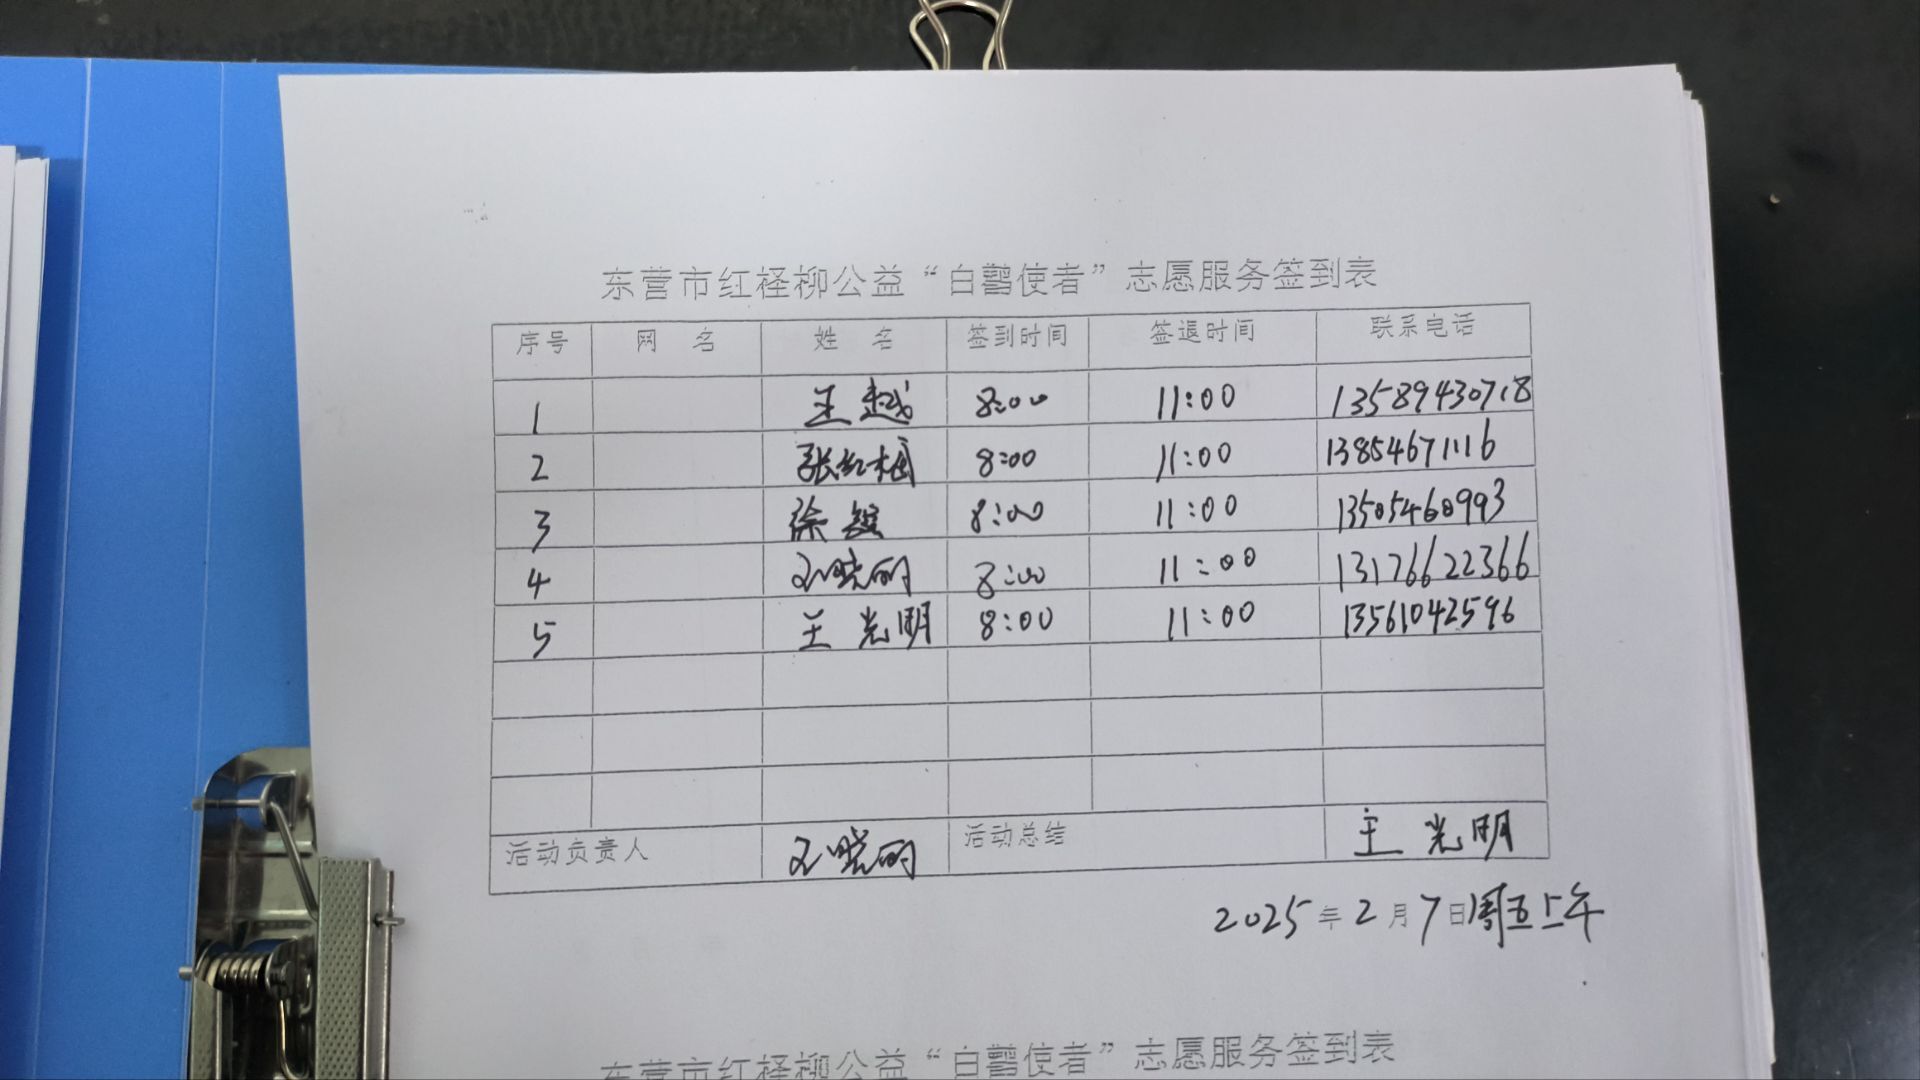 东营市红柽柳公益“白鹳使者”志愿服务签到表
序号 网 名 姓 名 签到时间 签退时间 联系电话
1 王越 8:00 11:00 13589430718
2 张红梅 8:00 11:00 13854671116
3 徐 8:00 11:00 13505460993
4 晓丽 8:00 11:00 13176622366
5 王光明 8:00 11:00 13561042596
活动负责人 晓丽 活动总结 王光明
2025年2月7日周五上午
东营市红柽柳公益“白鹳使者”志愿服务签到表